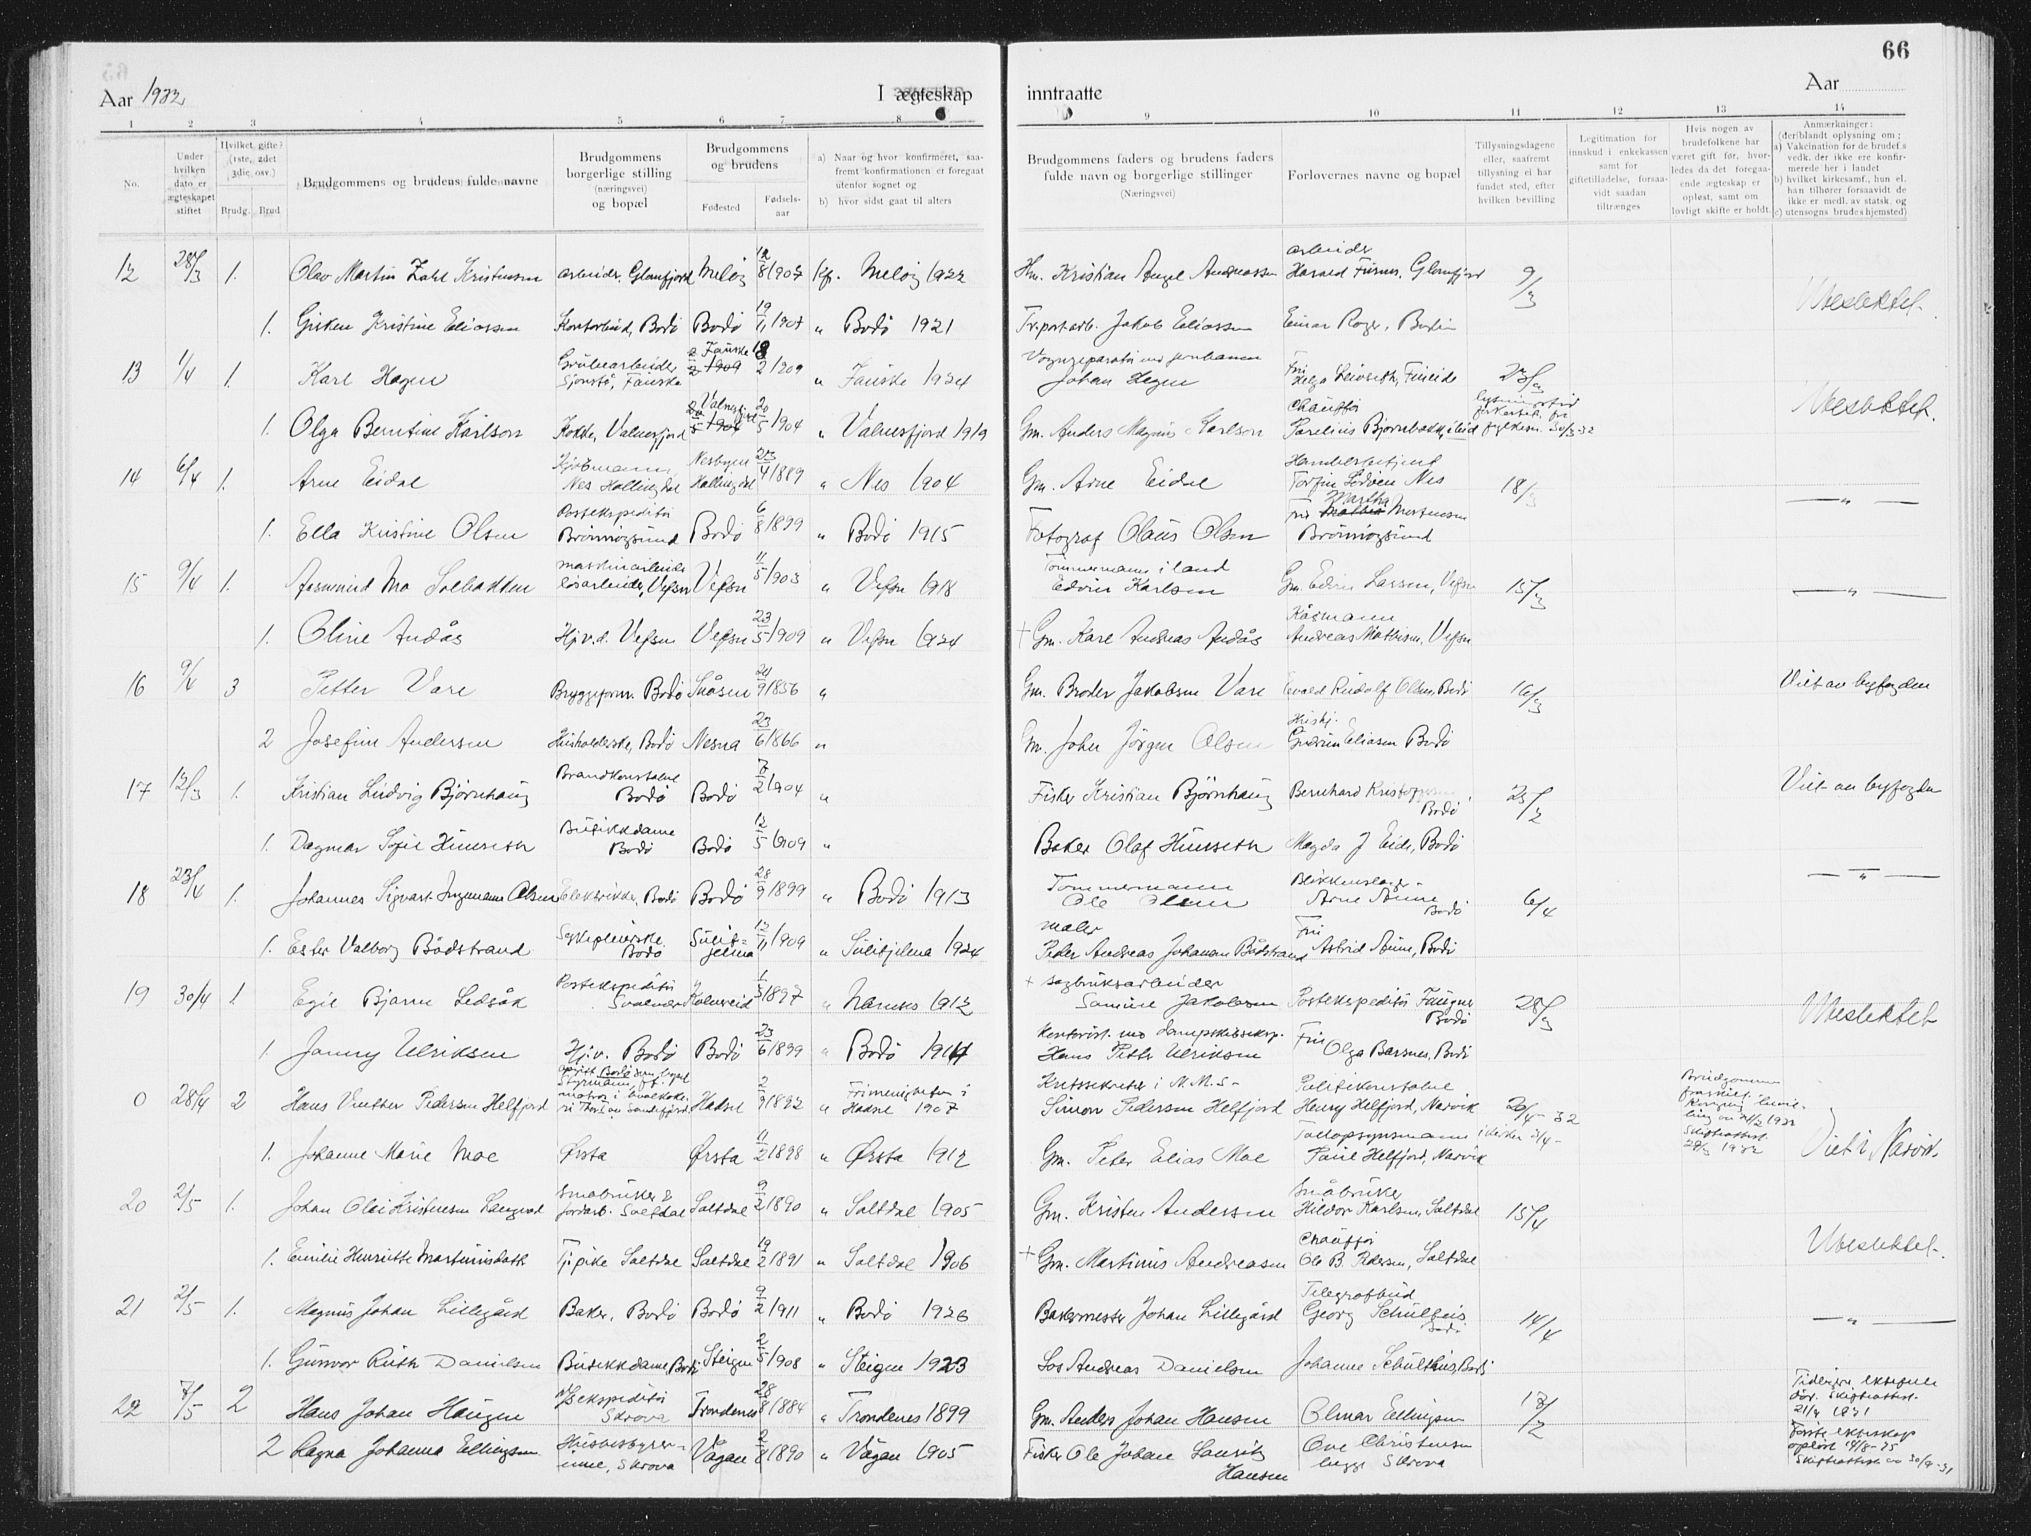 66
Aar 1932
I ægteskap
inntraatte
Aar
1 2 3 4 5 6 7 8 9 10 11 12 13 14
No.
Under hvilken dato er ægteskapet stiftet
Hvilket gifte? (1ste, 2det 3die, osv.)
Brudg. Brud
Brudgommens og brudens fulde navne
Brudgommens borgerlige stilling (næringsvei) og bopæl
Brudgommens og brudens
Fødested
Fødsels-aar
a) Naar og hvor konfirmeret, saafremt konfirmationen er foregaat utenfor sognet og
b) hvor sidst gaat til alters
Brudgommens faders og brudens faders fulde navn og borgerlige stillinger (Næringsvei)
Forlovernes navne og bopæl
Tillysningsdagene eller, saafremt tillysning ei har fundet sted, efter hvilken bevilling
Legitimation for indskud i enkekassen samt for giftetilladelse, forsaavidt saadan tiltrænges
Hvis nogen av brudefolkene har været gift før, hvorledes da det foregaaende ægteskap er opløst, samt om lovligt skifte er holdt.
Anmerkninger: (deriblandt oplysning om; a) Vakcination for de brudef.s vedk. der ikke ere konfirmerede her i landet b) hvilket kirkesamf., hun el. han tilhører forsaavidt de ikke er medl. av statsk. og c) utensogns brudes hjemsted)
12 28/3 1. Olav Martin Zahl Kristensen arbeider, Glomfjord Meløy 12/8 1907 Kf. Meløy 1922
Hm. Kristian Angel Andreassen arbeider Harald Furnes, Glomfjord 9/3 Ubeslektet.
1. Gisken Kristine Eliassen Kontorbud, Bodø Bodø 19/11 1907 " Bodø 1921
Tr.portarb. Jakob Eliassen Einar Roger, Bodin
13 1/4 1. Karl Hagen Grubearbeider, Sjønstå, Fauske Fauske 18/2 1909 " Fauske 1924
Johan Hagen Fru Helga Leivseth, Fineide 23/3 Ubeslektet.
1. Olga Berntine Karlson Kokke, Valnesfjord Valnesfjord 20/5 1904 " Valnesfjord 1919
Gm. Anders Magnus Karlson Chauffør Parelius Bjørnbakk
14 6/4 1. Arne Eidal Kjøbmann, Nes Hallingdal Nesbyen Hallingdal 23/4 1889 " Nes 1904
Gm. Arne Eidal Handelsbetjent Nes 18/3 — " —
1. Ella Kristine Olsen Postekspeditør Brønnøysund Bodø 6/8 1899 " Bodø 1915
Fotograf Olaus Olsen Fru Martha Mortensen Brønnøysund
15 9/4 1. Aasmund Mo Solbakken løsarbeider, Vefsn Vefsn 11/5 1903 " Vefsn 1918
Tømmermann i land Edvin Karlsen Gm. Edvin Larsen, Vefsn 15/3 — " —
1. Oline Andås Hj.v.d. Vefsn Vefsn 23/5 1909 " Vefsn 1924
+ Gm. Karl Andreas Andås Kåsmann Andreas Mathisen, Vefsn
16 9/4 3 Petter Vare Bryggeform. Bodø Snåsen 24/9 1856 "
Gm. Broder Jakobsen Vare Evald Rudolf Olsen, Bodø 16/3 Viet av byfogden
2 Josefine Andersen Husholderske, Bodø Nesna 23/6 1866 "
Gm. John Jørgen Olsen Gudrun Eliasen Bodø
17 12/3 1. Kristian Ludvig Bjørnhaug Brandkonstabel Bodø Bodø 7/2 1904 "
Fisker Kristian Bjørnhaug Bernhard Kristoffersen, Bodø 23/2 Viet av byfogden
1. Dagmar Sofie Hunseth Butikkdame Bodø Bodø 12/5 1909 "
Baker Olaf Hunseth Magda J Eide, Bodø
18 23/4 1. Johannes Sigvart Ingemann Olsen Elektriker, Bodø Bodø 28/9 1899 " Bodø 1913
Tømmermann Ole Olsen Blikkenslager Arne Aune Bodø 6/4 — " —
1. Ester Valborg Bådstrand Sykepleierske. Bodø Sulitjelma 12/11 1909 " Sulitjelma 1924
maler Peder Andreas Johansen Bådstrand Fru Astrid Aune, Bodø
19 30/4 1 Egil Bjarne Ledsåk Postekspeditør Svolvær Kolvereid 1/3 1897 " Nærnes 1912
+ sagbruksarbeider Samine Jakobsen Postekspeditør Faugner Bodø 28/3 Ubeslektet
1 Janny Ulriksen Hj.v. Bodø Bodø 23/6 1899 " Bodø 1914
Kontorist ved dampskibseksp. Hans Petter Ulriksen Fru Olga Barsnes, Bodø
0 28/4 2 Hans Vinther Pedersen Helfjord Hadsel 2/9 1892 " Frimenigheten i Hadsel 1907
Kretssekretær i N.M.S. Simon Pedersen Helfjord Politikonstabel Henry Helfjord, Narvik 20/4-32 Viet i Narvik.
1. Johanne Marie Moe Ørsta Ørsta 11/2 1898 " Ørsta 1912
Gm. Peter Elias Moe Tollopsynsmann Paul Helfjord, Narvik
20 2/5 1. Johan Olai Kristensen Langvad Småbruker & jordarb. Saltdal Saltdal 9/2 1890 " Saltdal 1905
Gm. Kristen Andersen Småbruker Hildor Karlsen, Saltdal 15/4 Ubeslektet.
1. Emilie Henriette Martinusdatt Tj.pike Saltdal Saltdal 19/2 1891 " Saltdal 1906
+ Gm. Martinus Andreasen Chauffør Ole B. Pedersen, Saltdal
21 2/5 1. Magnus Johan Lillegård Baker, Bodø Bodø 9/2 1911 " Bodø 1926
Bakermester Johan Lillegård Telegrafbud Georg Schultheis Bodø 14/4 — " —
1. Gunvor Ruth Danielsen Butikkdame Bodø Steigen 2/5 1908 " Steigen 1923
Los Andreas Danielsen Johanne Schultheis, Bodø
22 7/5 2 Hans Johan Haugen Skrova Trondenes 28/8 1884 " Trondenes 1899
Gm. Anders Johan Hansen Olmar Ellingsen 18/2
2 Ragna Johanna Ellingsen Husbestyrerinne, Skrova Vågan 2/8 1890 " Vågan 1905
Fisker Ole Johan Lauritz Hansen Ove Christensen begge Skrova